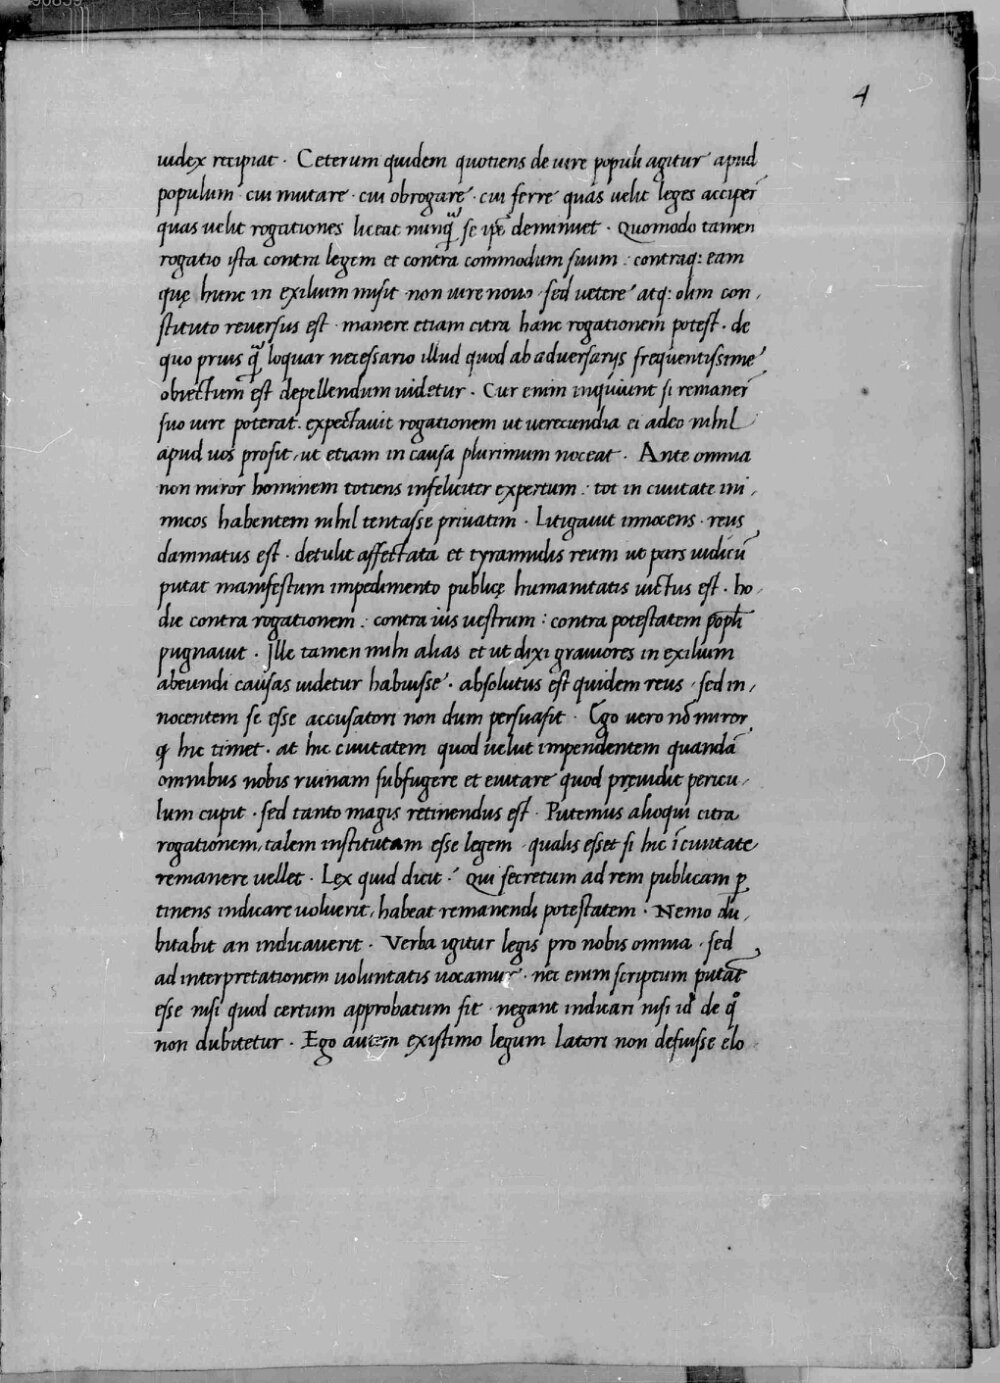 4
iudex recipiat · Ceterum quidem quotiens de iure populi agitur apud
populum · cui mutare · cui obrogare · cui ferre quas uelit leges acciper̄
quas uelit rogationes liceat nunq̃ se ip̄e deminuet · Quomodo tamen
rogatio ista contra legem et contra commodum suum : contraq: eam
quę hunc in exilium misit · non iure nouo · sed uetere atq: olim con,
stituto reuersus est · manere etiam citra hanc rogationem potest · de
quo prius q̃ loquar necessario illud quod ab aduersarijs frequentissime
obiectum est depellendum uidetur · Cur enim inquiunt si remaner̄
suo iure poterat · expectauit rogationem ut uerecundia ei adeo nihil
apud uos prosit, ut etiam in causa plurimum noceat · Ante omnia
non miror hominem totiens infeliciter expertum : tot in ciuitate ini,
micos habentem nihil tentasse priuatim · Litigauit innocens · reus
damnatus est · detulit affectata et tyrannidis reum ut pars iudicū
putat manifestum impedimento publicę humanitatis uictus est · ho,
die contra rogationem : contra ius uestrum : contra potestatem pop̄li
pugnauit · Ille tamen mihi alias et ut dixi grauiores in exilium
abeundi causas uidetur habuisse · absolutus est quidem reus · sed in,
nocentem se esse accusatori non dum persuasit · Ego uero nō miror
q hic timet · at hic ciuitatem quod uelut impendentem quandā
omnibus nobis ruinam subfugere et euitare quod pręuidit pericu,
lum cupit · sed tanto magis retinendus est · Putemus alioqui citra
rogationem, talem institutam esse legem · qualis esset si hic ī ciuitate
remanere uellet · Lex quid dicit · Qui secretum ad rem publicam ꝑ
tinens indicare uoluerit, habeat remanendi potestatem · Nemo du,
bitabit an indicauerit · Verba igitur legis pro nobis omnia · sed
ad interpretationem uoluntatis uocamur · nec enim scriptum putāt
esse nisi quod certum approbatum sit · negant indicari nisi id de qº
non dubitetur · Ego autem existimo legum latori non defuisse elo